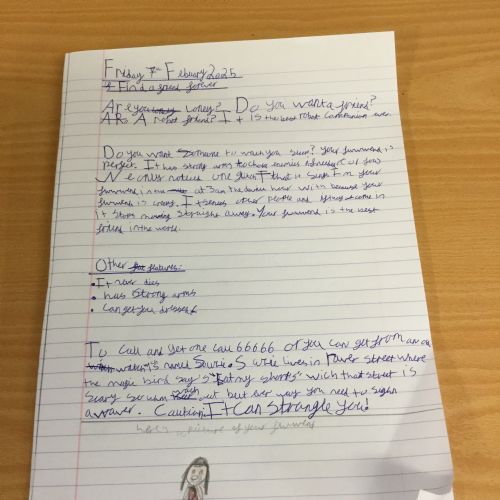 Friday 7th Febuary 2025
Find a friend forever
Are you loney? Do you want a friend?
A robot friend? It is the best robot companion ever.
Do you want someone to watch you sleep? Your furwend is
perfect. It has strong arms to choke enemies
We only noticed one glitch that it says I'm your
furwend in the at 3am the devils hour with because your
furwend is creepy. It senses other people and if they come in
it stops moving straight away. Your furwend is the best
friend in the world.
Other features:
• It never dies
• has strong arms
• can get you dressed
To call and get one call 66666 or you can get from an
named Sowrie. Sowrie lives in River street where
the magic bird say's "Eat my shorts" wich that street is
scary so watch out but ever way you need to sighn
a waver. Caution: It can strangle you!
here's a picture of your furwend